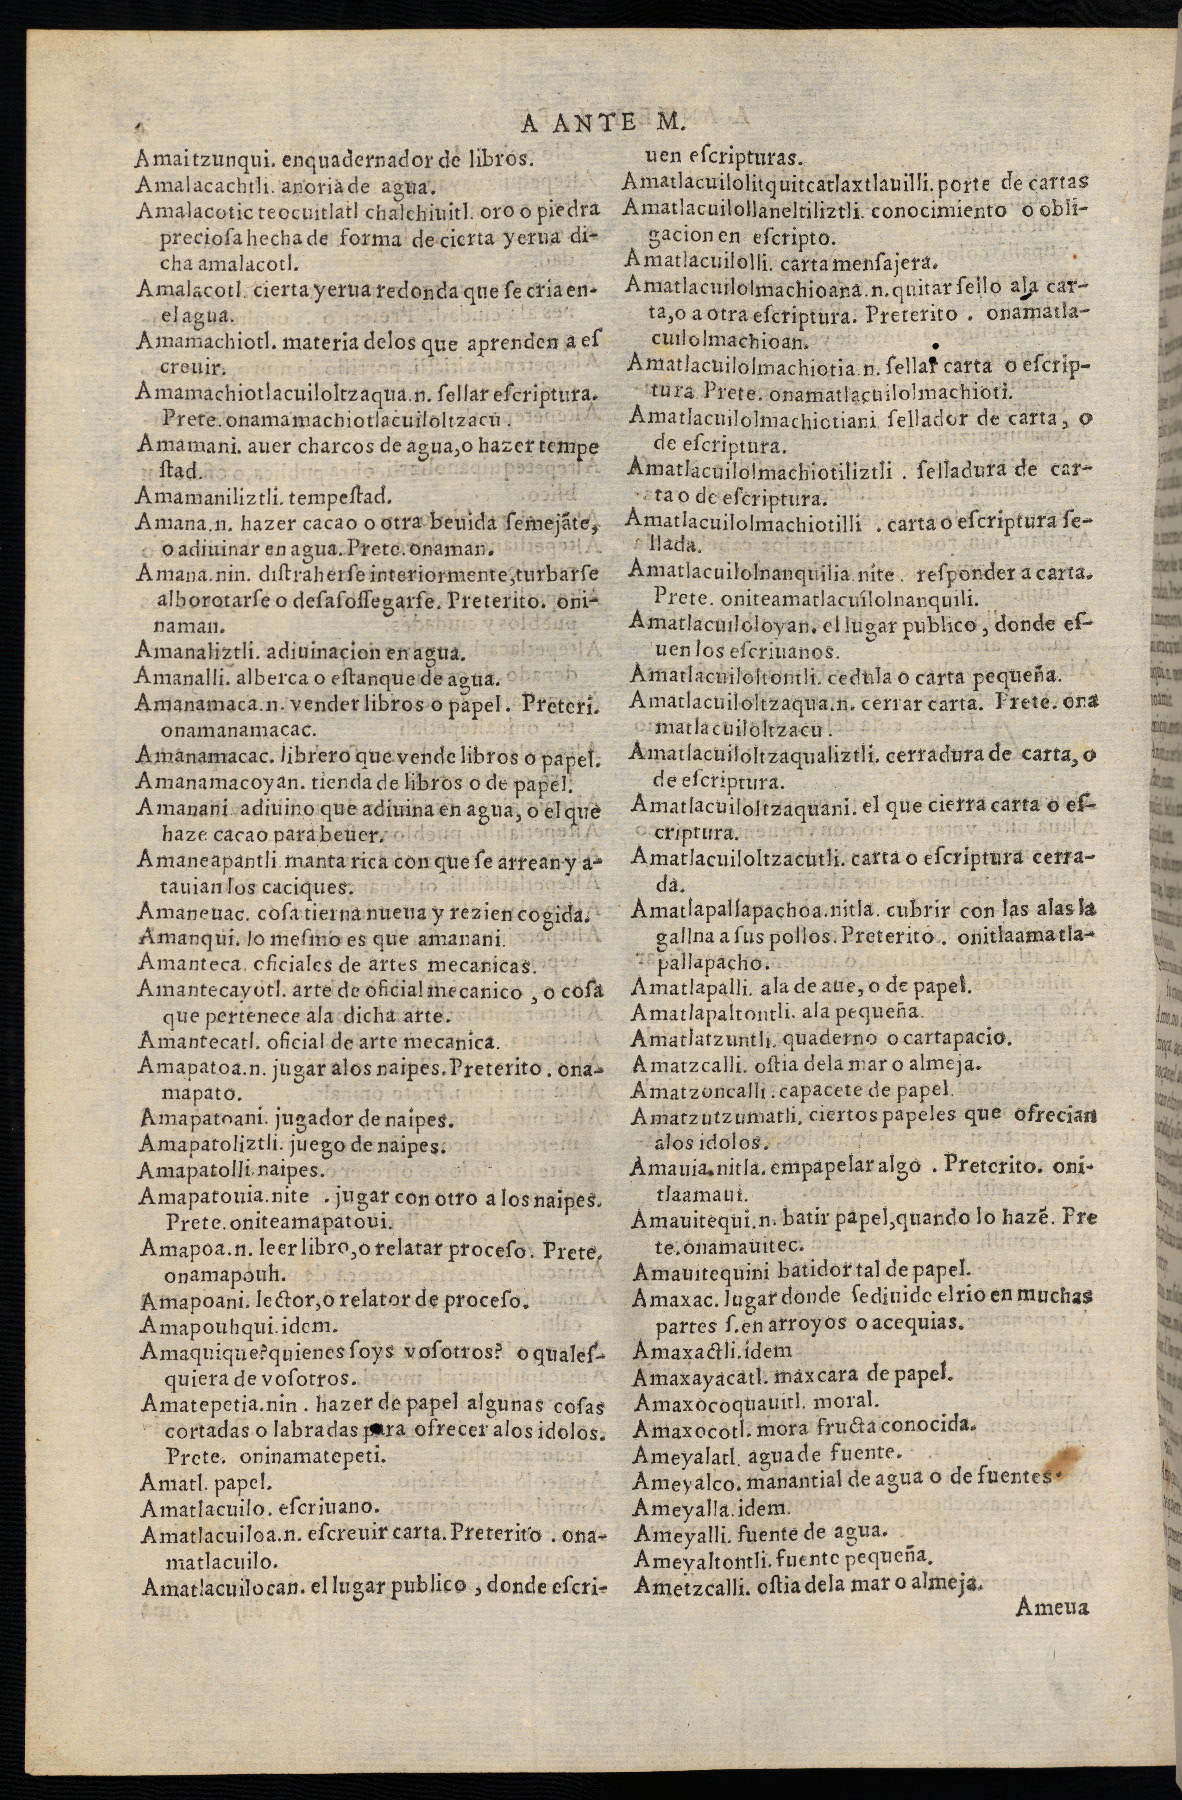 A ANTE M.
Amaitzunqui. enquadernador de libros.
Amalacachtli. anoria de agua.
Amalacotic teocuitlatl chalchiuitl. oro o piedra
preciosa hecha de forma de cierta yerua di-
cha amalacotl.
Amalacotl. cierta yerua redonda que se cria en-
el agua.
Amamachiotl. materia delos que aprenden a es
creuir.
Amamachiotlacuiloltzaqua.n. sellar escriptura.
Prete.onamamachiotlacuiloltzacu.
Amamani. auer charcos de agua, o hazer tempe
stad.
Amamaniliztli. tempestad.
Amana.n. hazer cacao o otra beuida semejãte,
o adiuinar en agua. Prete.onaman.
Amana.nin. distraherse interiormente, turbarse
alborotarse o desasossegarse. Preterito. oni-
naman.
Amanaliztli. adiuinacion en agua.
Amanalli. alberca o estanque de agua.
Amanamaca.n. vender libros o papel. Preteri.
onamanamacac.
Amanamacac. librero que vende libros o papel.
Amanamacoyan. tienda de libros o de papel.
Amanani adiuino que adiuina en agua, o el que
haze cacao para beuer.
Amaneapantli manta rica con que se arrean y a-
tauian los caciques.
Amaneuac. cosa tierna nueua y rezien cogida.
Amanqui. lo mesmo es que amanani.
Amanteca oficiales de artes mecanicas.
Amantecayotl. arte de oficial mecanico, o cosa
que pertenece ala dicha arte.
Amantecatl. oficial de arte mecanica.
Amapatoa.n. jugar alos naipes. Preterito. ona-
mapato.
Amapatoani. jugador de naipes.
Amapatoliztli. juego de naipes.
Amapatolli naipes.
Amapatouia.nite . jugar con otro a los naipes.
Prete.oniteamapatoui.
Amapoa.n. leer libro, o relatar proceso. Prete.
onamapouh.
Amapoani. lector, o relator de proceso.
Amapouhqui.idem.
Amaquique? quienes soys vosotros? o quales-
quiera de vosotros.
Amatepetia.nin . hazer de papel algunas cosas
cortadas o labradas para ofrecer alos idolos.
Prete. oninamatepeti.
Amatl. papel.
Amatlacuilo. escriuano.
Amatlacuiloa.n. escreuir carta. Preterito . ona-
matlacuilo.
Amatlacuilocan. el lugar publico, donde escri-
uen escripturas.
Amatlacuilolitquitcatlaxtlauilli. porte de cartas
Amatlacuilollaneltiliztli. conocimiento o obli-
gacion en escripto.
Amatlacuilolli. carta mensajera.
Amatlacuilolmachioana.n. quitar sello ala car-
ta, o a otra escriptura. Preterito . onamatla-
cuilolmachioan.
Amatlacuilolmachiotia.n. sellar carta o escrip-
tura Prete. onamatlacuilolmachioti.
Amatlacuilolmachiotiani sellador de carta, o
de escriptura.
Amatlacuilolmachiotiliztli . selladura de car-
ta o de escriptura.
Amatlacuilolmachiotilli . carta o escriptura se-
llada.
Amatlacuilolnanquilia.nite . responder a carta.
Prete. oniteamatlacuilolnanquili.
Amatlacuiloloyan. el lugar publico, donde es-
uen los escriuanos.
Amatlacuiloltontli. cedula o carta pequeña.
Amatlacuiloltzaqua.n. cerrar carta. Prete. ona
matlacuiloltzacu.
Amatlacuiloltzaqualiztli. cerradura de carta, o
de escriptura.
Amatlacuiloltzaquani. el que cierra carta o es-
criptura.
Amatlacuiloltzacutli. carta o escriptura cerra-
da.
Amatlapallapachoa.nitla. cubrir con las alas la
gallina a sus pollos. Preterito . onitlaamatla-
pallapacho.
Amatlapalli. ala de aue, o de papel.
Amatlapaltontli. ala pequeña.
Amatlatzuntli. quaderno o cartapacio.
Amatzcalli. ostia dela mar o almeja.
Amatzoncalli . capacete de papel.
Amatzutzumatli. ciertos papeles que ofrecian
alos idolos.
Amauia.nitla. empapelar algo . Preterito. oni-
tlaamaui.
Amauitequi.n. batir papel, quando lo hazẽ. Pre
te.onamauitec.
Amauitequini batidor tal de papel.
Amaxac. lugar donde se diuide el rio en muchas
partes s.en arroyos o acequias.
Amaxactli.idem
Amaxayacatl. maxcara de papel.
Amaxocoquauitl. moral.
Amaxocotl. mora fructa conocida.
Ameyalatl. agua de fuente.
Ameyalco. manantial de agua o de fuentes.
Ameyalla.idem.
Ameyalli. fuente de agua.
Ameyaltontli. fuente pequeña.
Ametzcalli. ostia dela mar o almeja.
Ameua